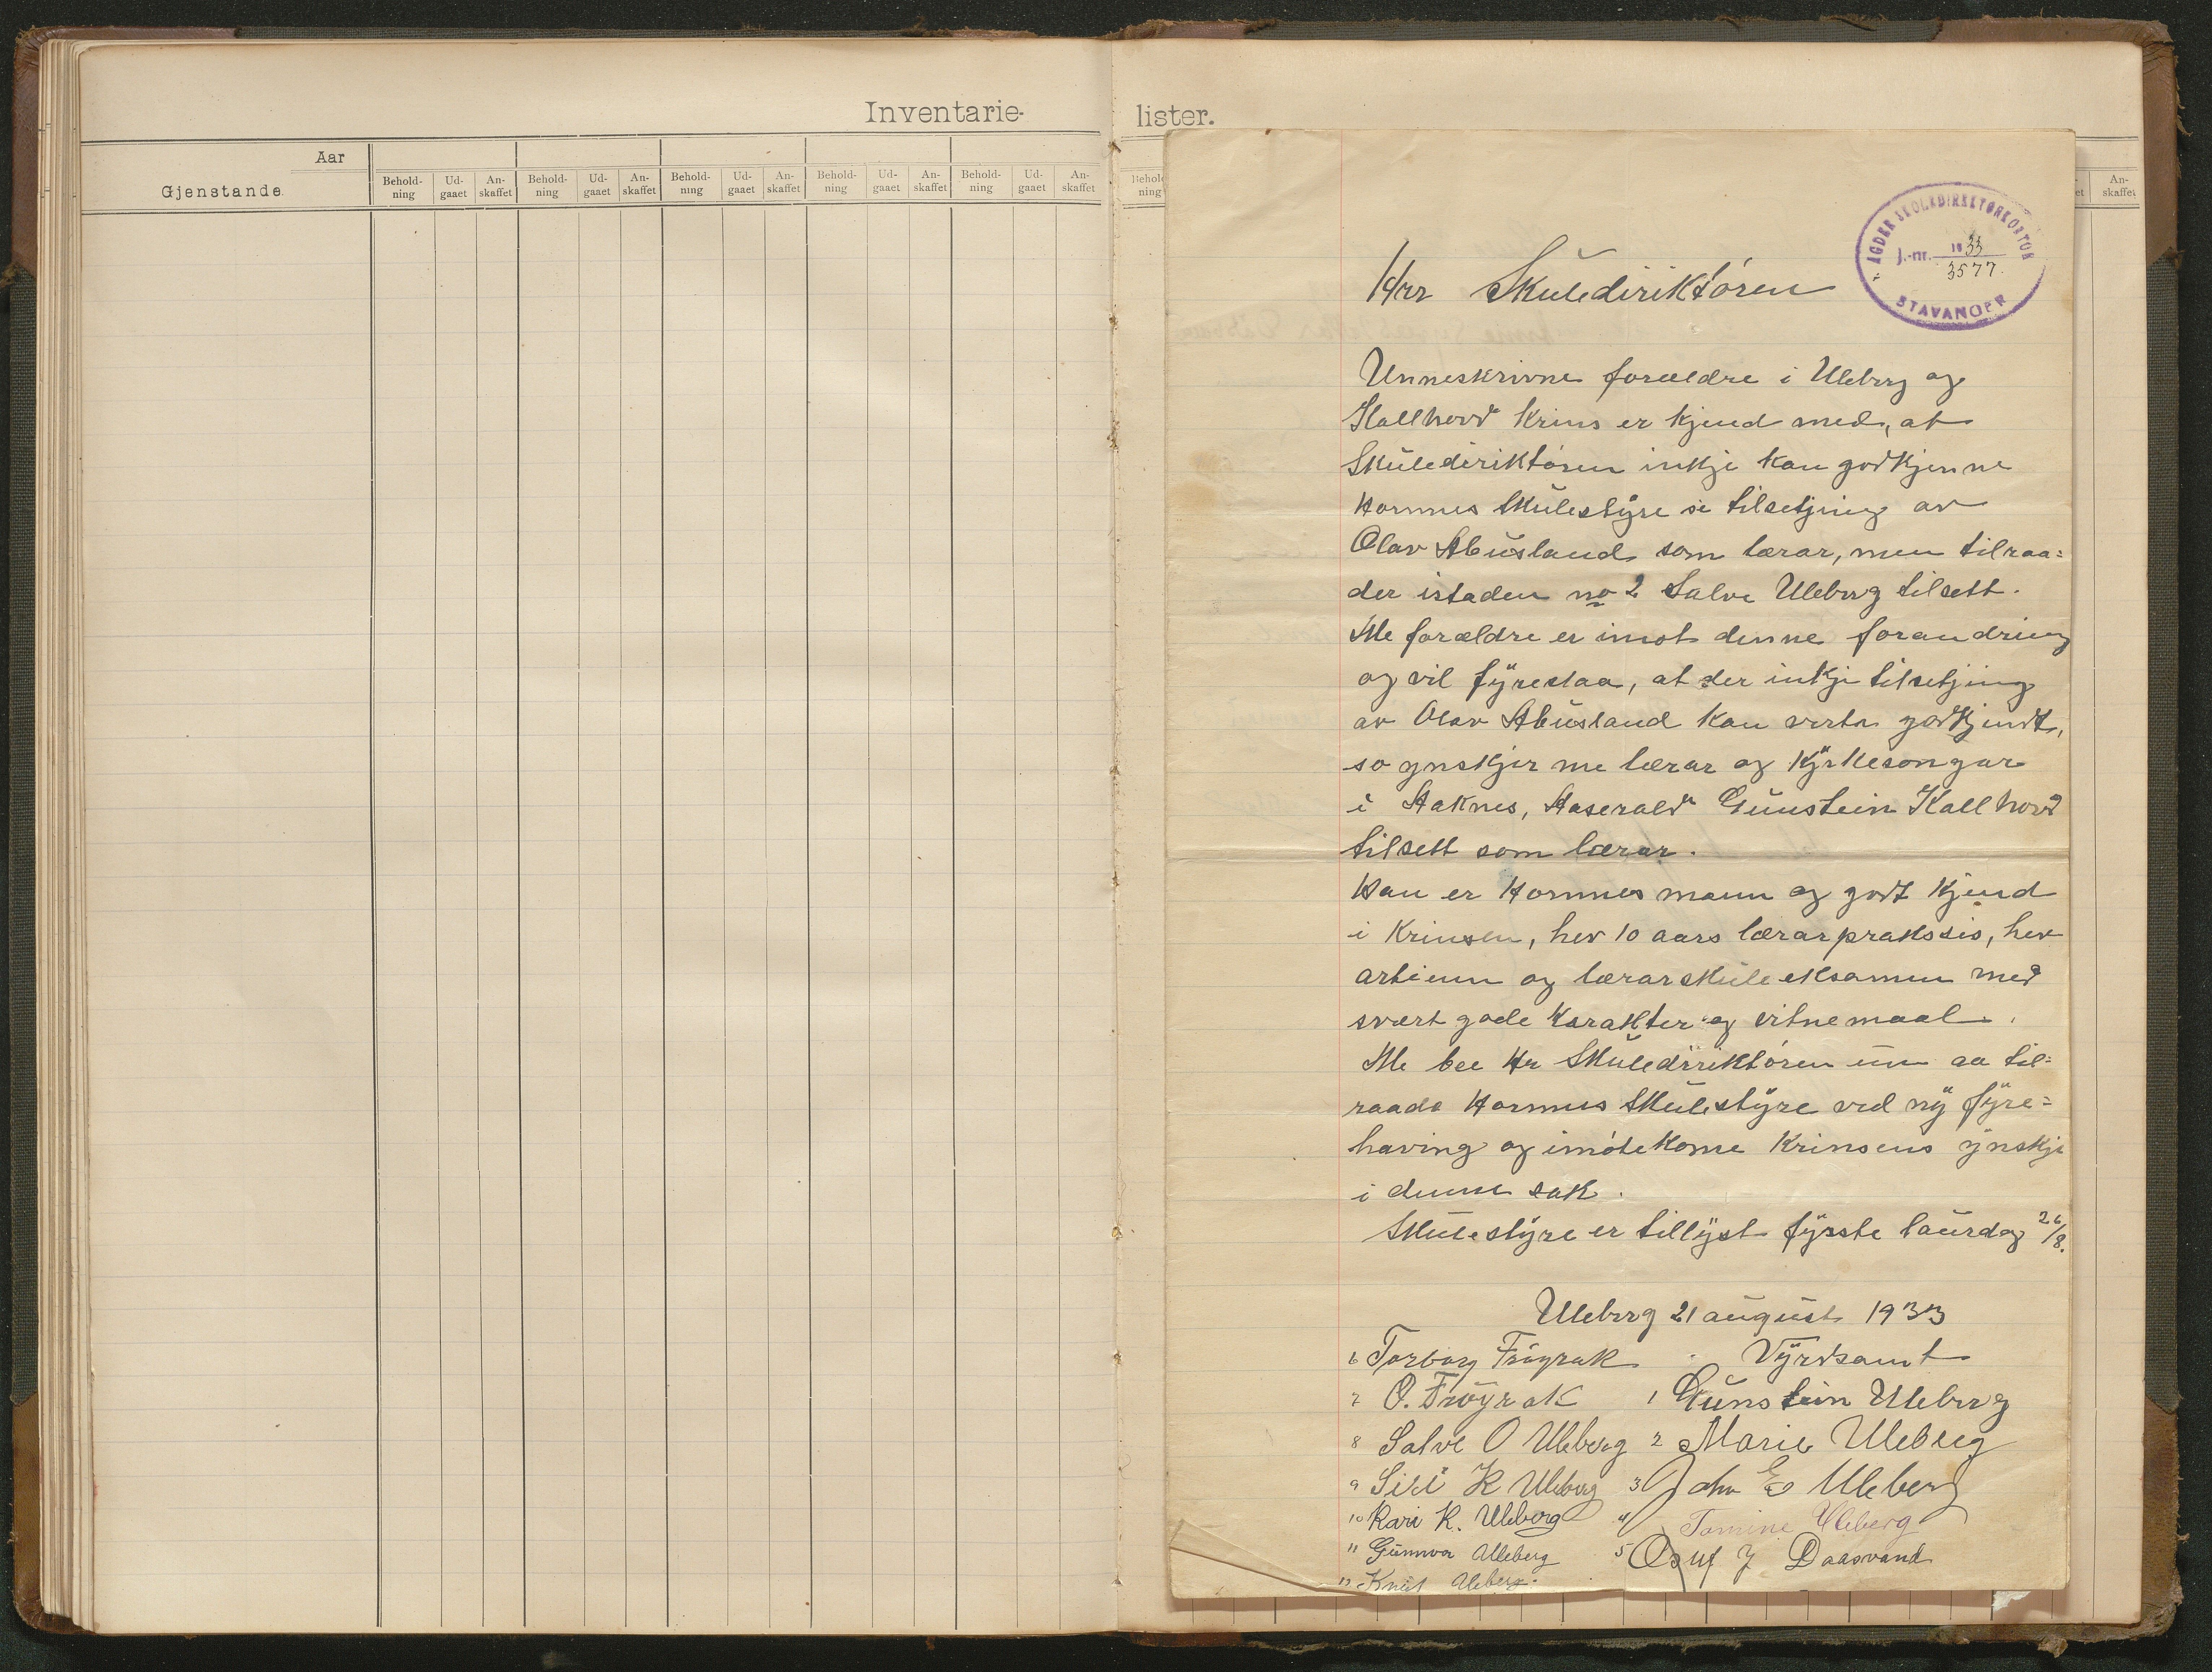 Inventarie-
Aar
Gjenstande
Behold-ning Ud-gaaet An-skaffet Behold-ning Ud-gaaet An-skaffet Behold-ning Ud-gaaet An-skaffet Behold-ning Ud-gaaet An-skaffet Behold-ning Ud-gaaet An-skaffet
lister.
An-skaffet
AGDER SKOLEDIREKTØRKONTOR
J.-nr. 1933
3577.
STAVANGER
Hrr Skulediriktøren
Unneskrivne forældre i Uleberg og
Kallhovd Krins er kjend med, at
Skulediriktøren inkje kan godkjenne
Hornnes Skulestyre si tilsetjing av
Olav Abusland som lærar, men tilraa=
der istaden no 2 Salve Uleberg tilsett.
Me forældre er imot denne forandring
og vil fyreslaa, at der inkje tilsetjing
av Olav Abusland kan verta godkjendt,
so ynskjer me lærar og Kyrkesongar
i Aaknes, Aaserald Gunstein Kallhovd
tilsett som lærar.
Han er Hornnes mann og godt kjend
i Krinsen, hev 10 aars lærarpraksis, hev
artium og lærarskuleeksamen med
svært gode Karakter og vitnemaal.
Me bee Hr Skuledirriktøren um aa til=
raada Hornnes Skulestyre ved ny fyre=
having og imøtekome Krinsens ynskje
i denne sak.
Skulestyre er tillyst fyrste laurdag 26/8.
Uleberg 21 august 1933
Vyrdsamt
1 Gunstein Uleberg
2 Marie Uleberg
3 John E Uleberg
4 Tomine Uleberg
5 Daasvand
6 Torborg Frøyrak
7 O. Frøyrak
8 Salve O Uleberg
9 Siri K Uleberg
10 Kari K. Uleberg
11 Gunnvor Uleberg
12 Knut Uleberg.